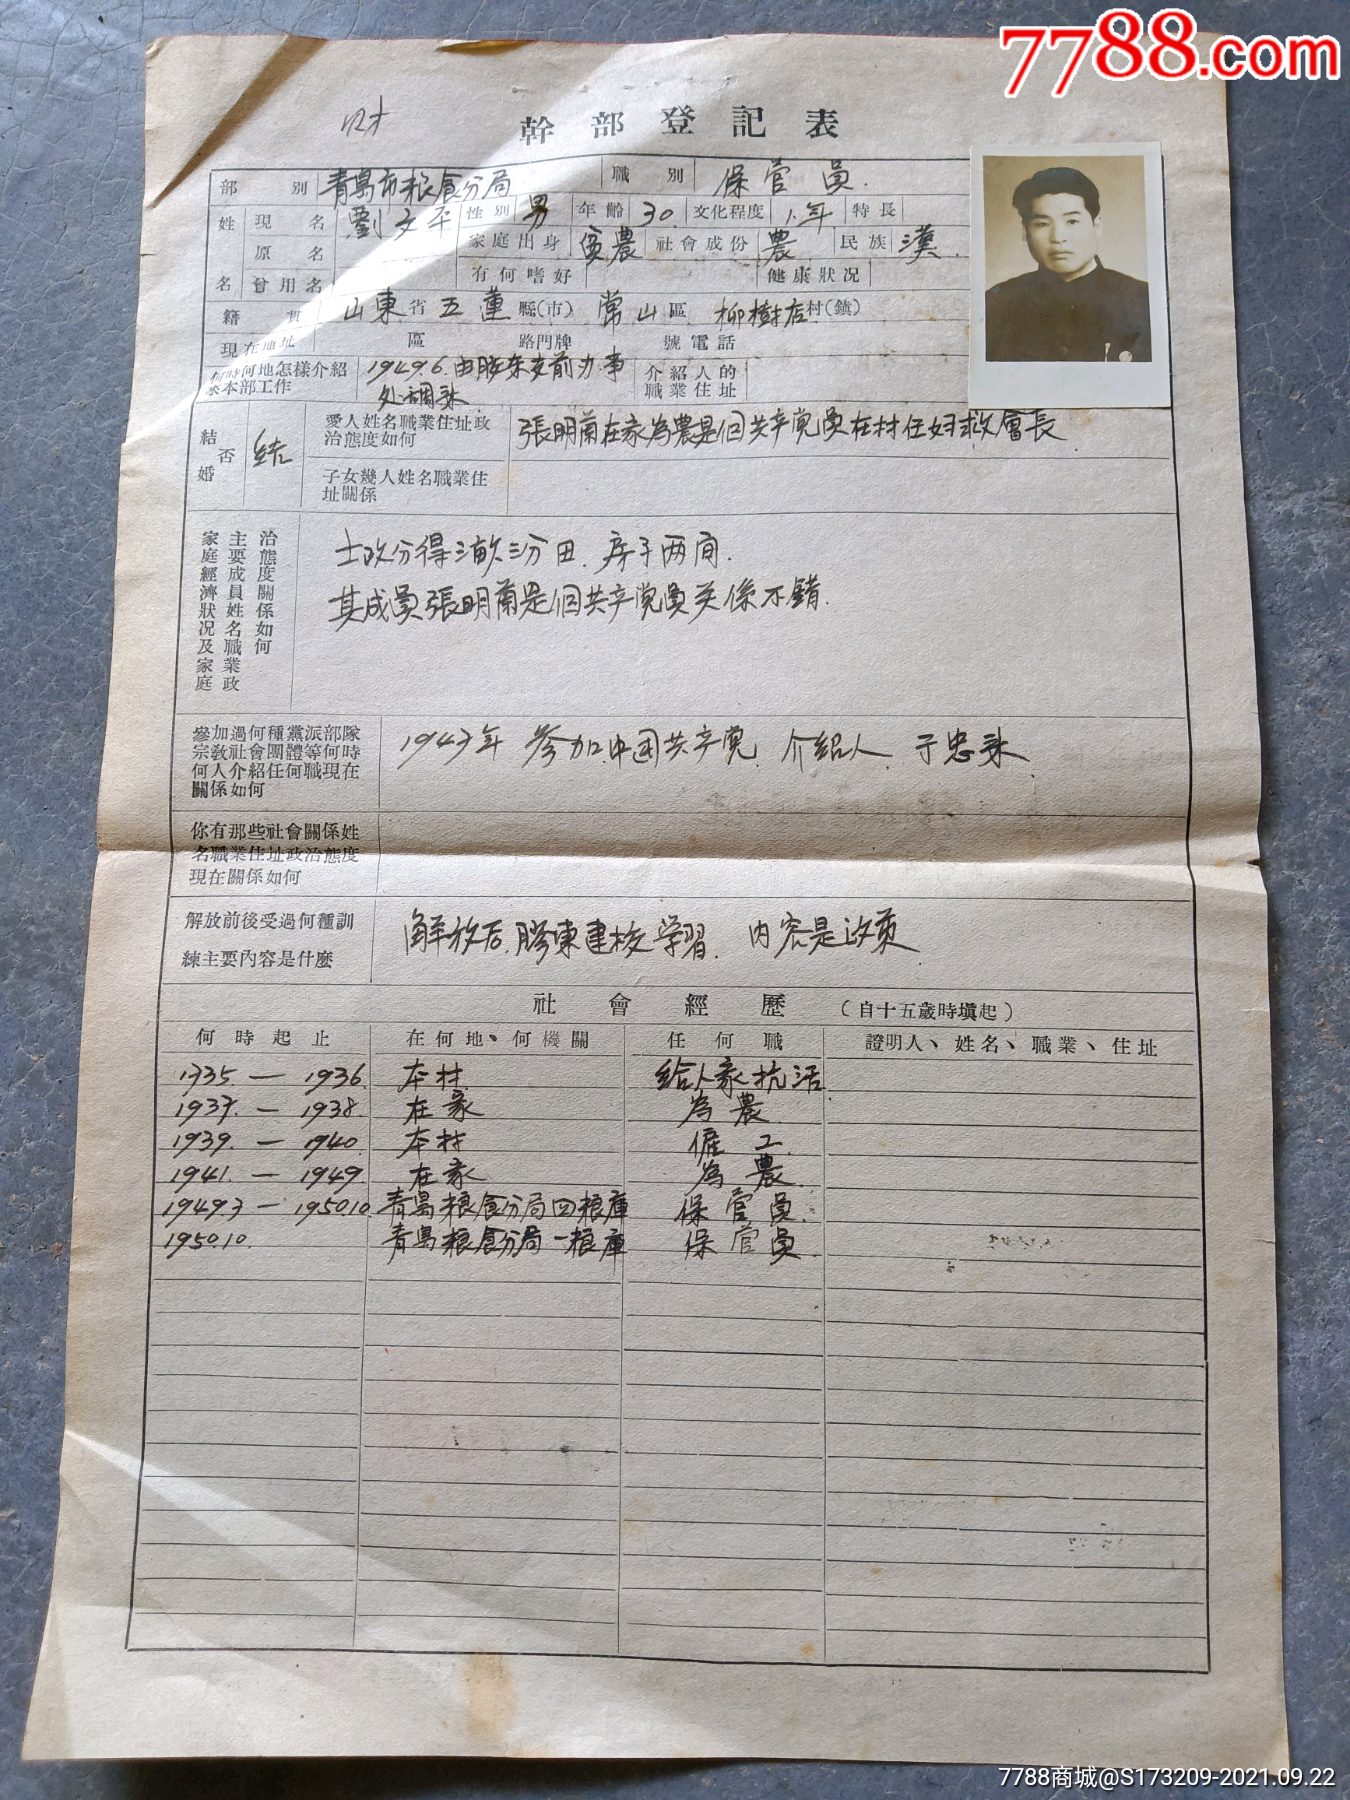 7788.com
财
幹部登記表
部別 青島市粮食分局 職別 保管員
姓名 現名 劉文平 性別 男 年齡 30 文化程度 1年 特長
原名 家庭出身 貧農 社會成份 農 民族 漢
曾用名 有何嗜好 健康狀况
籍貫 山東省五蓮縣(市)常山區柳樹店村(鎮)
現在地址 區 路門牌 號電話
何時何地怎樣介紹 1949.6.由胶东支前办事 介紹人的
來本部工作 处調来 職業住址
結否婚 结 愛人姓名職業住址政 張明蘭在家為農是個共产党員在村任妇救會長
治態度如何
子女幾人姓名職業住
址關係
家庭經濟狀况及家庭
主要成員姓名職業政
治態度關係如何
土改分得三畝三分田.房子两间.
其成員張明蘭是個共产党員关係不錯.
參加過何種黨派部隊
宗教社會團體等何時 1947年参加中国共产党.介紹人.于忠
何人介紹任何職現在
關係如何
你有那些社會關係姓
名職業住址政治態度
現在關係如何
解放前後受過何種訓 解放后.膠東建校学習.内容是政策
練主要內容是什麽
社會經歷 (自十五歲時填起)
何時起止 在何地、何機關 任何職 證明人、姓名、職業、住址
1935—1936. 本村. 給人家抗活
1937.—1938. 在家 為農.
1939.—1940. 本村 僱工.
1941.—1949. 在家 為農.
1949.7—1950.10. 青島粮食分局四粮庫 保管員.
1950.10. 青島粮食分局一粮庫 保管員
7788商城@S173209-2021.09.22